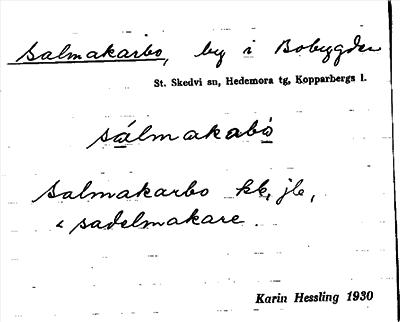 Salmakarbo, by i Bobygden
St. Skedvi sn, Hedemora tg, Kopparbergs l.
sálmakabò
Salmakarbo kk, jle,
< sadelmakare.
Karin Hessling 1930